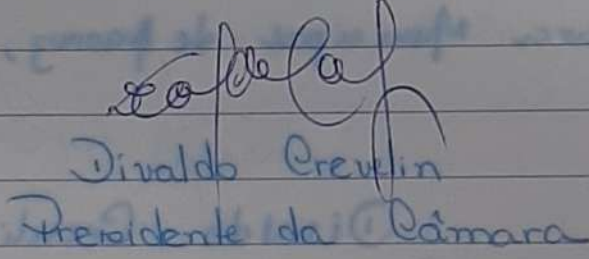 Divaldo Crevelin
Presidente da Câmara